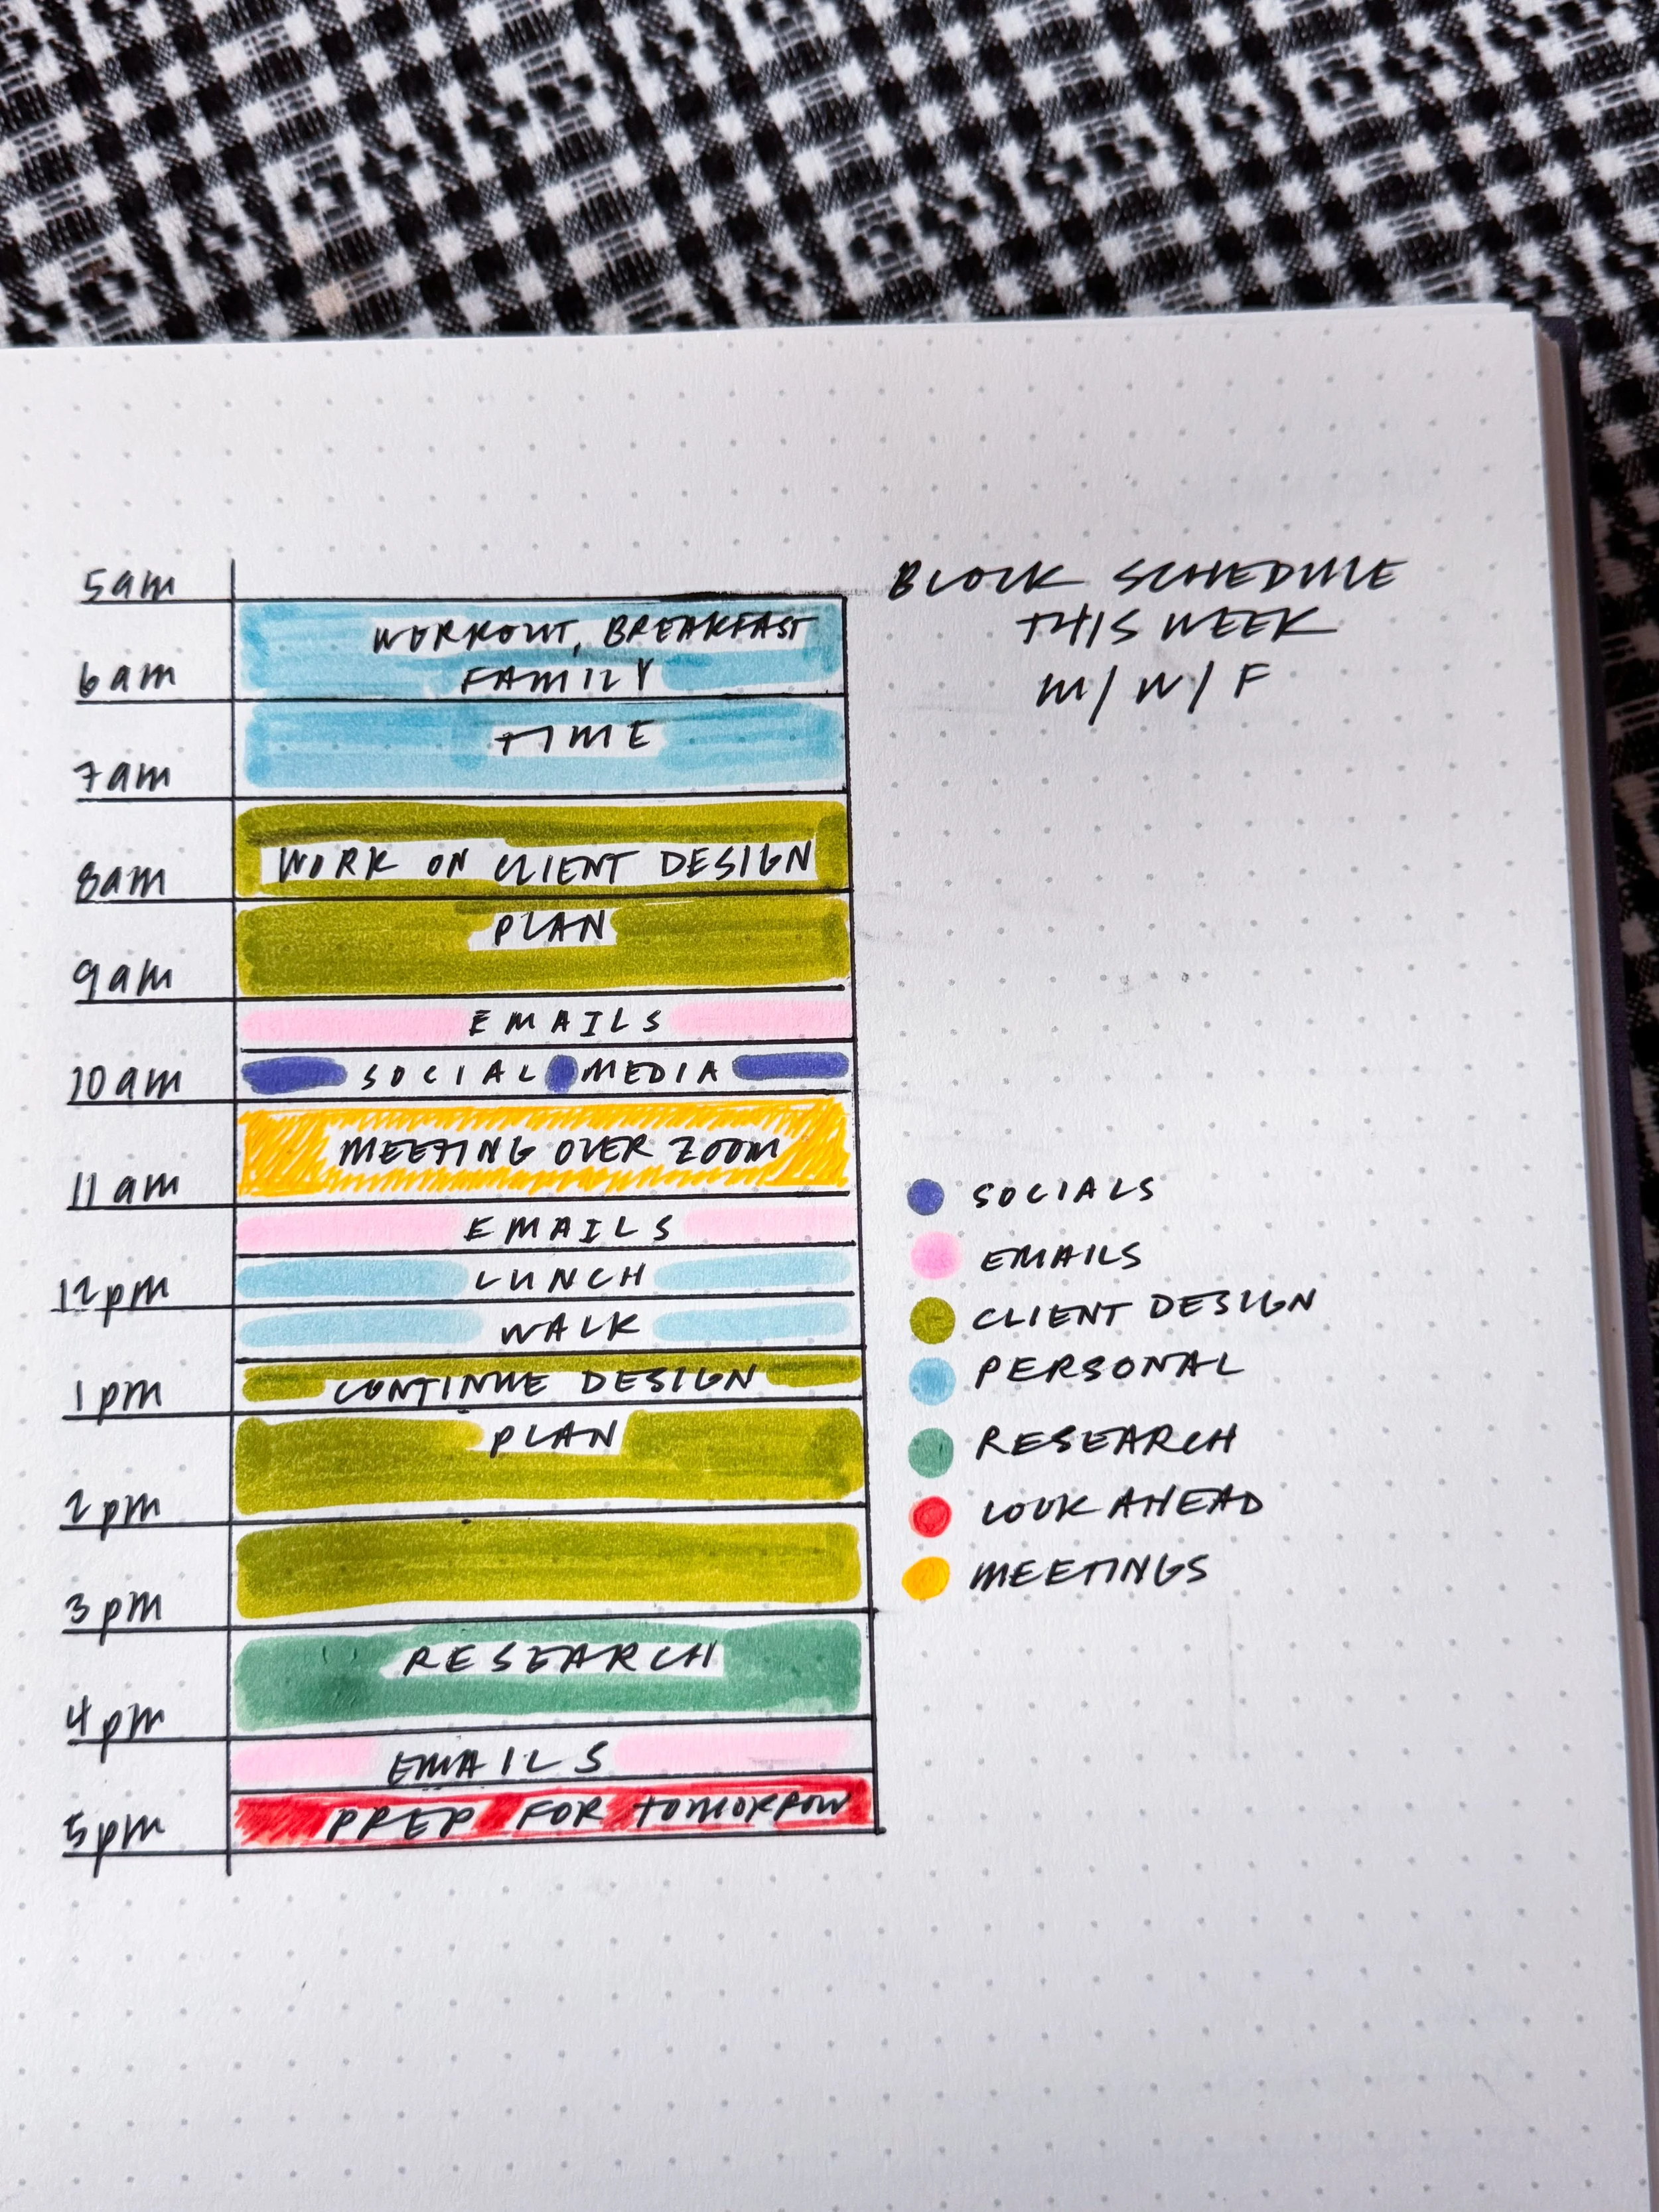 BLOCK SCHEDULE
THIS WEEK
M/W/F
5am
WORKOUT, BREAKFAST
FAMILY
6am
TIME
7am
WORK ON CLIENT DESIGN
8am
PLAN
9am
EMAILS
SOCIAL MEDIA
10am
MEETING OVER ZOOM
11am
EMAILS
LUNCH
12pm
WALK
CONTINUE DESIGN
1pm
PLAN
2pm
3pm
RESEARCH
4pm
EMAILS
PREP FOR TOMORROW
5pm
SOCIALS
EMAILS
CLIENT DESIGN
PERSONAL
RESEARCH
LOOK AHEAD
MEETINGS